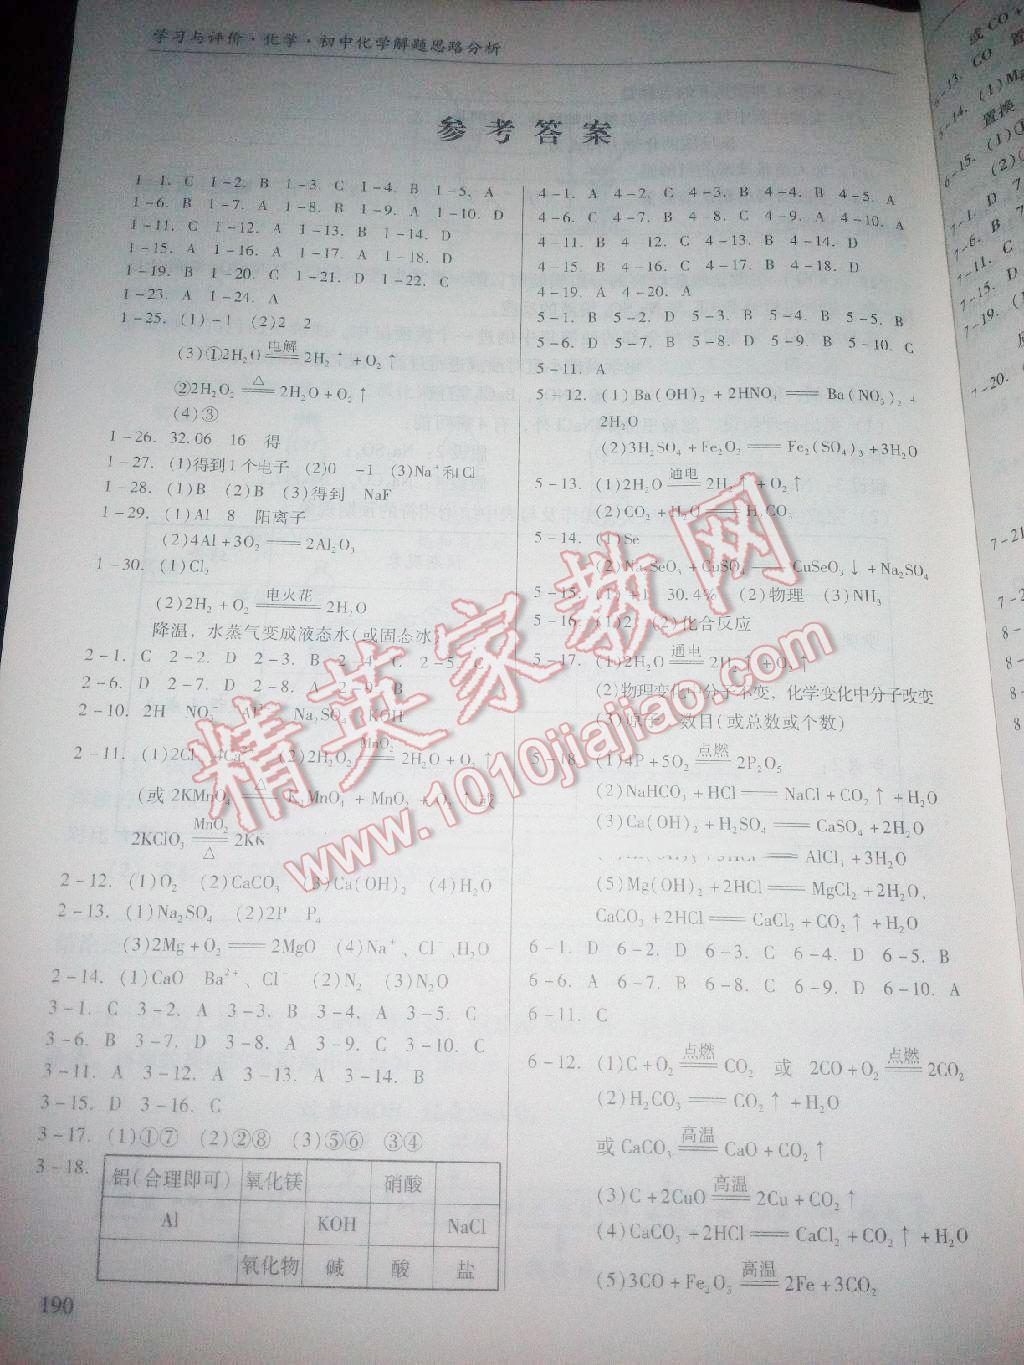 学习与评价·化学·初中化学解题思路分析
参考答案
1-1. C 1-2. B 1-3. C 1-4. B 1-5. A
1-6. B 1-7. A 1-8. B 1-9. A 1-10. D
1-11. C 1-12. A 1-13. B 1-14. D
1-15. A 1-16. A 1-17. A 1-18. D
1-19. B 1-20. C 1-21. D 1-22. C
1-23. A 1-24. A
1-25. (1)-1 (2)2 2
(3)①2H₂O ══电解══ 2H₂↑+O₂↑
②2H₂O₂ ══△══ 2H₂O+O₂↑
(4)③
1-26. 32.06 16 得
1-27. (1)得到1个电子 (2)0 -1 (3)Na⁺和Cl⁻
1-28. (1)B (2)B (3)得到 NaF
1-29. (1)Al 8 阳离子
(2)4Al+3O₂══2Al₂O₃
1-30. (1)Cl₂
(2)2H₂+O₂ ══电火花══ 2H₂O
降温,水蒸气变成液态水(或固态冰)
2-1. C 2-2. D 2-3. B 2-4. C 2-5. C
2-6. D 2-7. D 2-8. A 2-9. B
2-10. 2H NO₃⁻ Al³⁺ Na₂SO₄ KOH
2-11. (1)2Cl 4Ca²⁺ (2)2H₂O₂ ══MnO₂══ 2H₂O+O₂↑
(或2KMnO₄ ══△══ K₂MnO₄+MnO₂+O₂↑或
2KClO₃ ══MnO₂/△══ 2K
2-12. (1)O₂ (2)CaCO₃ (3)Ca(OH)₂ (4)H₂O
2-13. (1)Na₂SO₄ (2)2P P₄
(3)2Mg+O₂══2MgO (4)Na⁺、Cl⁻、H₂O
2-14. (1)CaO Ba²⁺、Cl⁻ (2)N₂ (3)N₂O
3-1. C 3-2. A 3-3. B 3-4. A 3-5. C
3-6. B 3-7. D 3-8. A 3-9. C 3-10. C
3-11. A 3-12. A 3-13. A 3-14. B
3-15. D 3-16. C
3-17. (1)①⑦ (2)②⑧ (3)⑤⑥ ③④
3-18.
铝(合理即可) 氧化镁 硝酸
Al KOH NaCl
氧化物 碱 酸 盐
190
4-1. A 4-2. C 4-3. B 4-4. B 4-5. A
4-6. C 4-7. B 4-8. C 4-9. A 4-10. A
4-11. B 4-12. C 4-13. B 4-14. D
4-15. B 4-16. C 4-17. B 4-18. D
4-19. A 4-20. A
5-1. B 5-2. D 5-3. B 5-4. B 5-5. B
5-6. D 5-7. B 5-8. D 5-9. B 5-10. C
5-11. A
5-12. (1)Ba(OH)₂+2HNO₃══Ba(NO₃)₂+
2H₂O
(2)3H₂SO₄+Fe₂O₃══Fe₂(SO₄)₃+3H₂O
5-13. (1)2H₂O ══通电══ 2H₂↑+O₂↑
(2)CO₂+H₂O══H₂CO₃
5-14. (1)Se
(2)Na₂SeO₃+CuSO₄══CuSeO₃↓+Na₂SO₄
5-15. (1)+1 30.4% (2)物理 (3)NH₃
5-16. (1)2 (2)化合反应
5-17. (1)2H₂O ══通电══ 2H₂↑+O₂↑
(2)物理变化中分子不变,化学变化中分子改变
(3)原子 数目(或总数或个数)
5-18. (1)4P+5O₂ ══点燃══ 2P₂O₅
(2)NaHCO₃+HCl══NaCl+CO₂↑+H₂O
(3)Ca(OH)₂+H₂SO₄══CaSO₄+2H₂O
══AlCl₃+3H₂O
(5)Mg(OH)₂+2HCl══MgCl₂+2H₂O,
CaCO₃+2HCl══CaCl₂+CO₂↑+H₂O
6-1. D 6-2. D 6-3. C 6-4. D 6-5. B
6-6. A 6-7. B 6-8. C 6-9. D 6-10. A
6-11. C
6-12. (1)C+O₂ ══点燃══ CO₂ 或 2CO+O₂ ══点燃══ 2CO₂
(2)H₂CO₃══CO₂↑+H₂O
或CaCO₃ ══高温══ CaO+CO₂↑
(3)C+2CuO ══高温══ 2Cu+CO₂↑
(4)CaCO₃+2HCl══CaCl₂+CO₂↑+H₂O
(5)3CO+Fe₂O₃ ══高温══ 2Fe+3CO₂
或CO+
6-13. CO 置
6-14. (1)M
置换
6-15. (1)①
(2)
7-1. D 7
7-6. B 7
7-11. C
7-15. D
7-19. (1
7-20.
7-21
7-2
8-
8-
8-
精英家教网
www.1010jiajiao.com